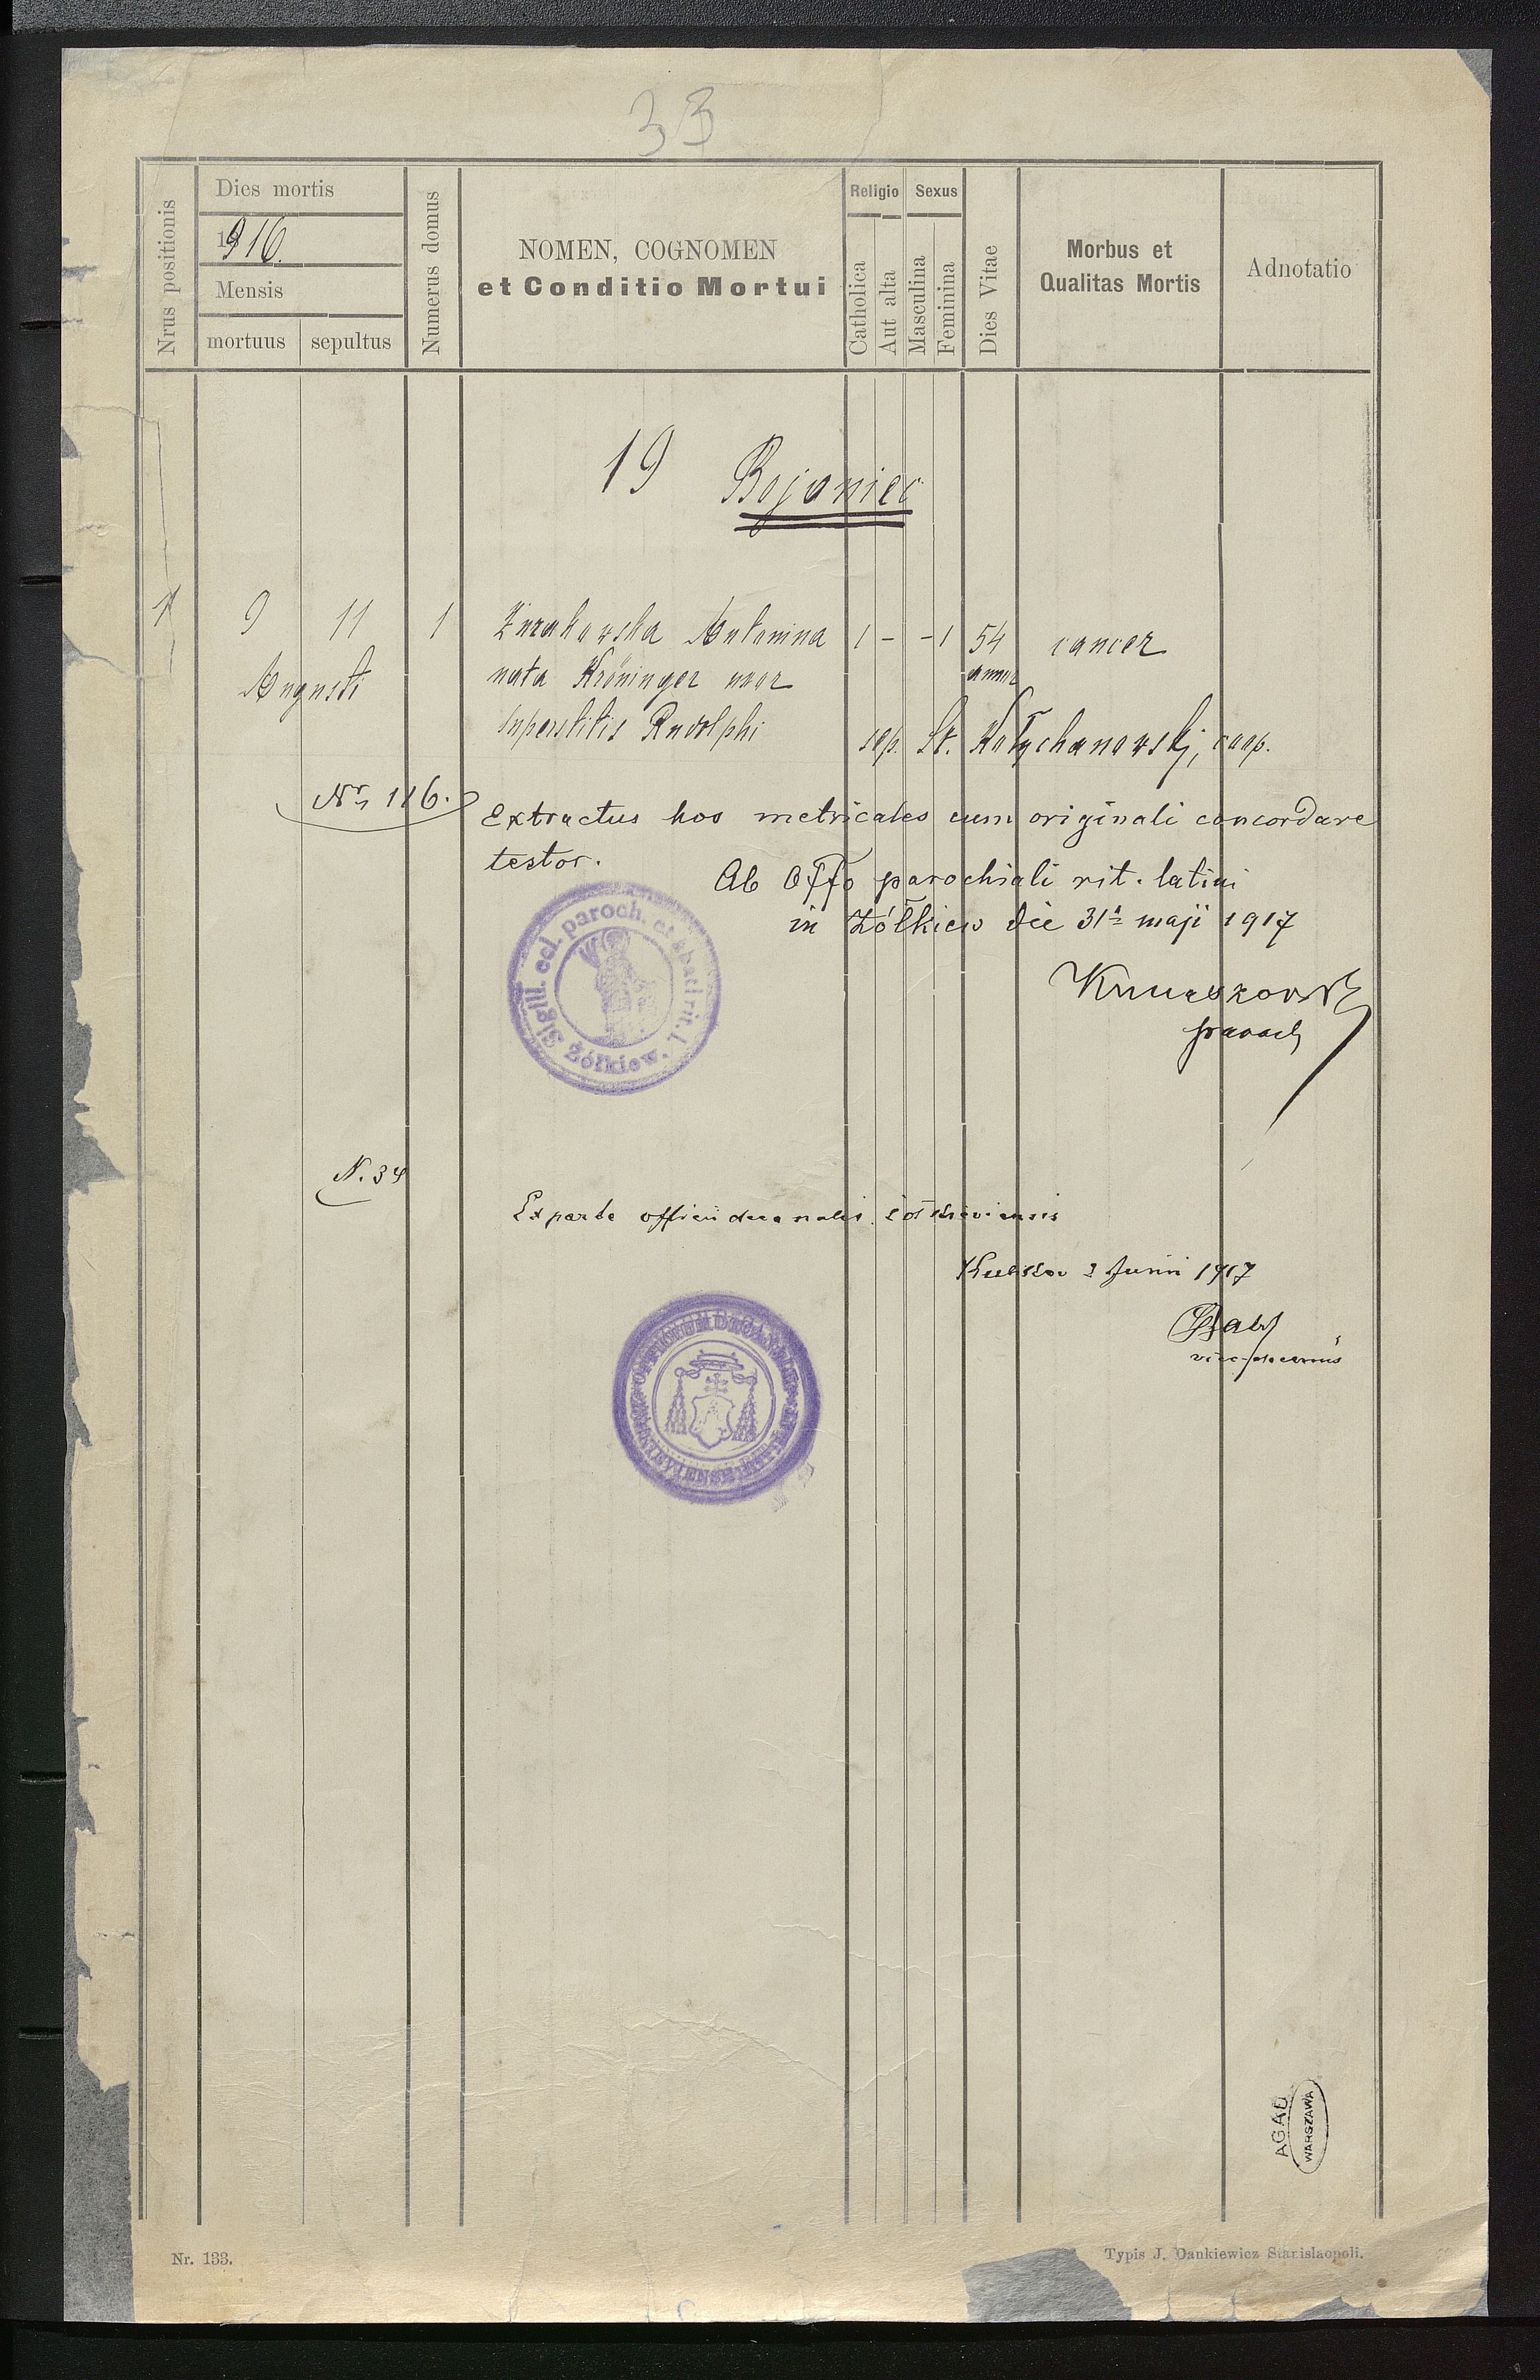 33
Nrus positionis
Dies mortis
1916.
Mensis
mortuus
sepultus
Numerus domus
NOMEN, COGNOMEN
et Conditio Mortui
Religio
Catholica
Aut alta
Sexus
Masculina
Feminina
Dies Vitae
Morbus et
Qualitas Mortis
Adnotatio
19 Bojaniec
1 9 11 1 Żurakowska Antonina 1 - - 1 54 cancer
Augusti nata Kröninger uxor annor
superstitis Rudolphi
sep. St. coop.
Nr 116.
Extractus hos metricales cum originali concordare
testor.
Ab Offo parochiali rit. latini
in Żółkiew die 31a maji 1917
paroch
Sigill. ecl. paroch. et abatl. rit. l.
Żółkiew.
N. 34
Ex parte officii decanalis Żółkieviensis
3 Junii 1917
vice-decanus
OFFICIUM DECANALE
AGAD
WARSZAWA
Nr. 133.
Typis J. Dankiewicz Stanislaopoli.